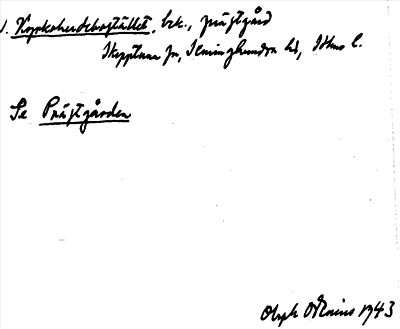 1. Kyrkoherdebostället, bek., prästgård
Skepptuna sn, Seminghundra hd, Sthms l.
Se Prästgården
1943